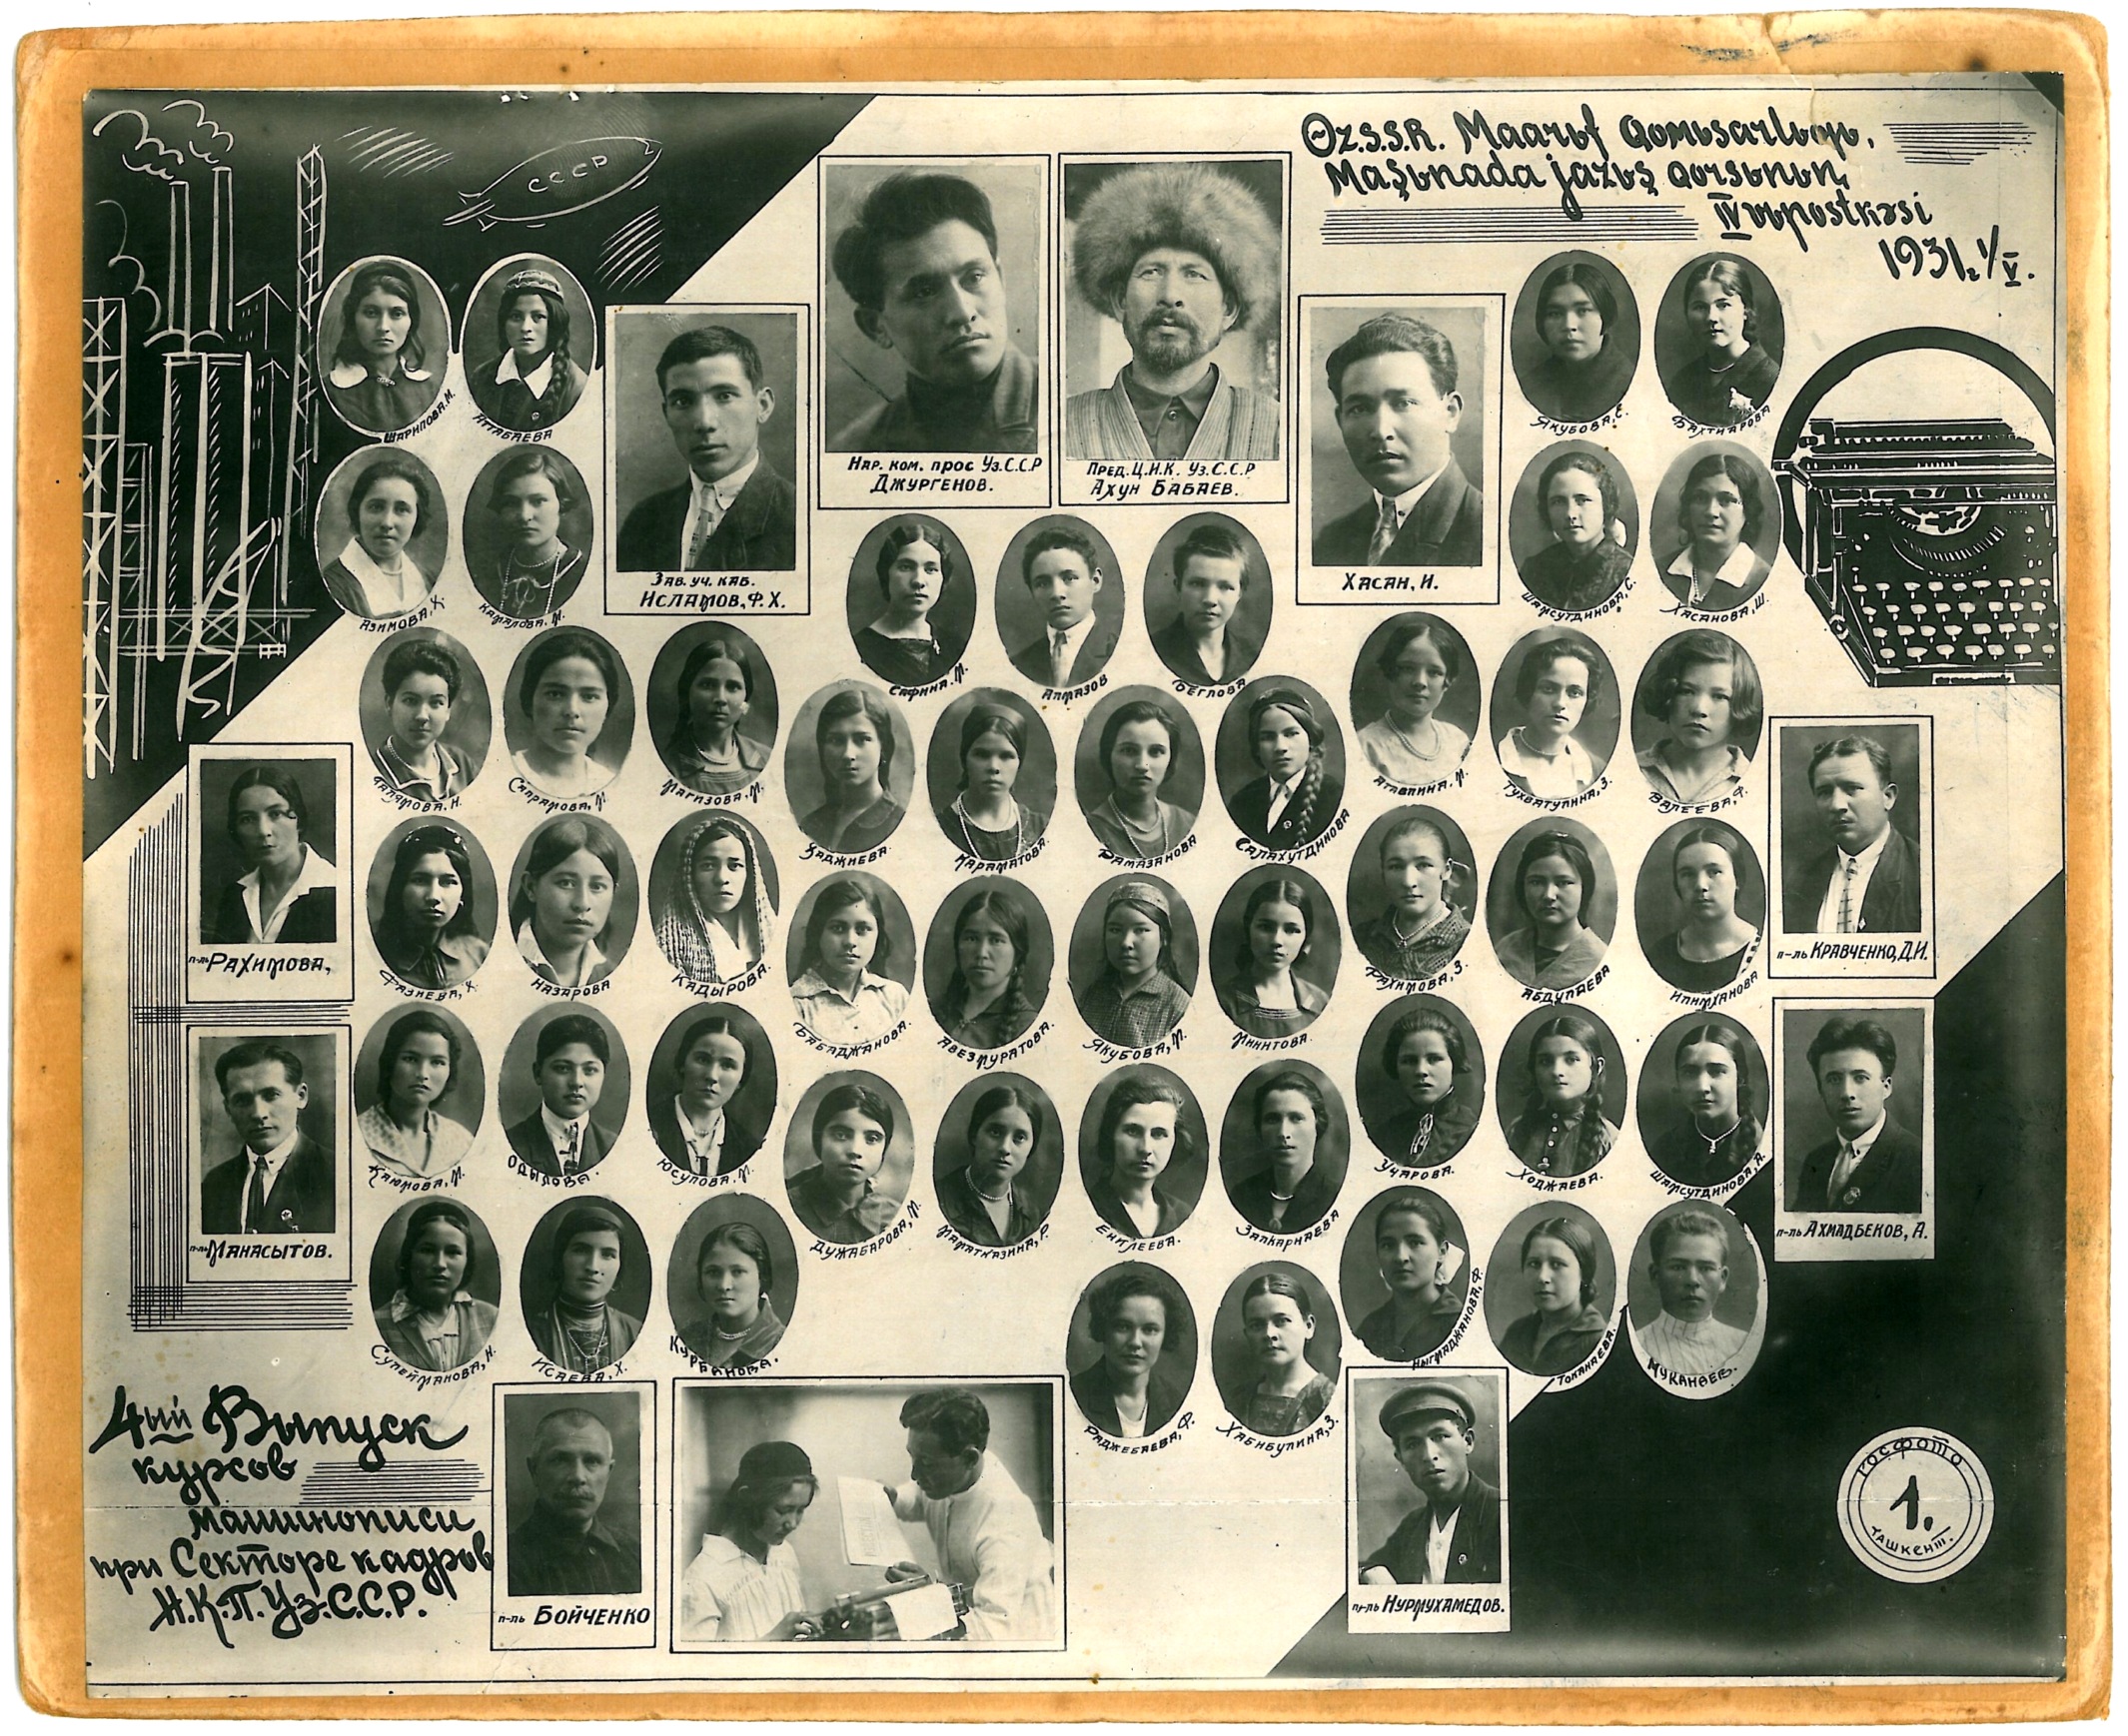 СССР
Өz.S.S.R. Maarьf Qomьsarlьƣь,
Maşьnada jazьş qursьnьn
IV vьpuskasi
1931. 1/V.
Нар. ком. прос Уз.С.С.Р
Джургенов.
Пред. Ц.И.К. Уз.С.С.Р
Ахун Бабаев.
Зав. уч. каб.
Исламов, Ф. Х.
Хасан, И.
Шарипова. М.
Аттабаева
Якубова, С.
Бахтиарова
Азимова, Х.
Камалова, М.
Шамсутдинова, С.
Хасанова, Ш.
Сафина. М.
Алмазов
Беглова
Галямова, Н.
Сапрамова, М
Магизова, М.
Хаджиева.
Караматова.
Рамазанова
Салахутдинова
Атавлина, М.
Тухватулина, З.
Валеева, Ф.
п-ль Рахимова,
п-ль Кравченко, Д. И.
Фазиева, Х.
Назарова
Кадырова.
Бабаджанова.
Авезмуратова.
Якубова, М.
Миннтова.
Рахимова, З.
Абдулаева
Илимханова
п-ль Манасытов.
п-ль Ахмадбеков, А.
Каюмова, М.
Одылова.
Юсупова. М.
Дужабарова, М.
Маматказина, Р.
Еникеева.
Залкарнаева
Учарова.
Ходжаева.
Шамсутдинова, А.
Сулейманова, Н.
Исаева, Х.
Курбанова.
Раджебаева, Ф.
Хабибулина, З.
Ныгмаджанова, Ф.
Токанаева.
Муканаев.
4ый Выпуск
курсов
машинописи
при Секторе кадров
Н.К.П. Уз.С.С.Р.
п-ль Бойченко
п-ль Нурмухамедов.
Госфото
1.
Ташкент.